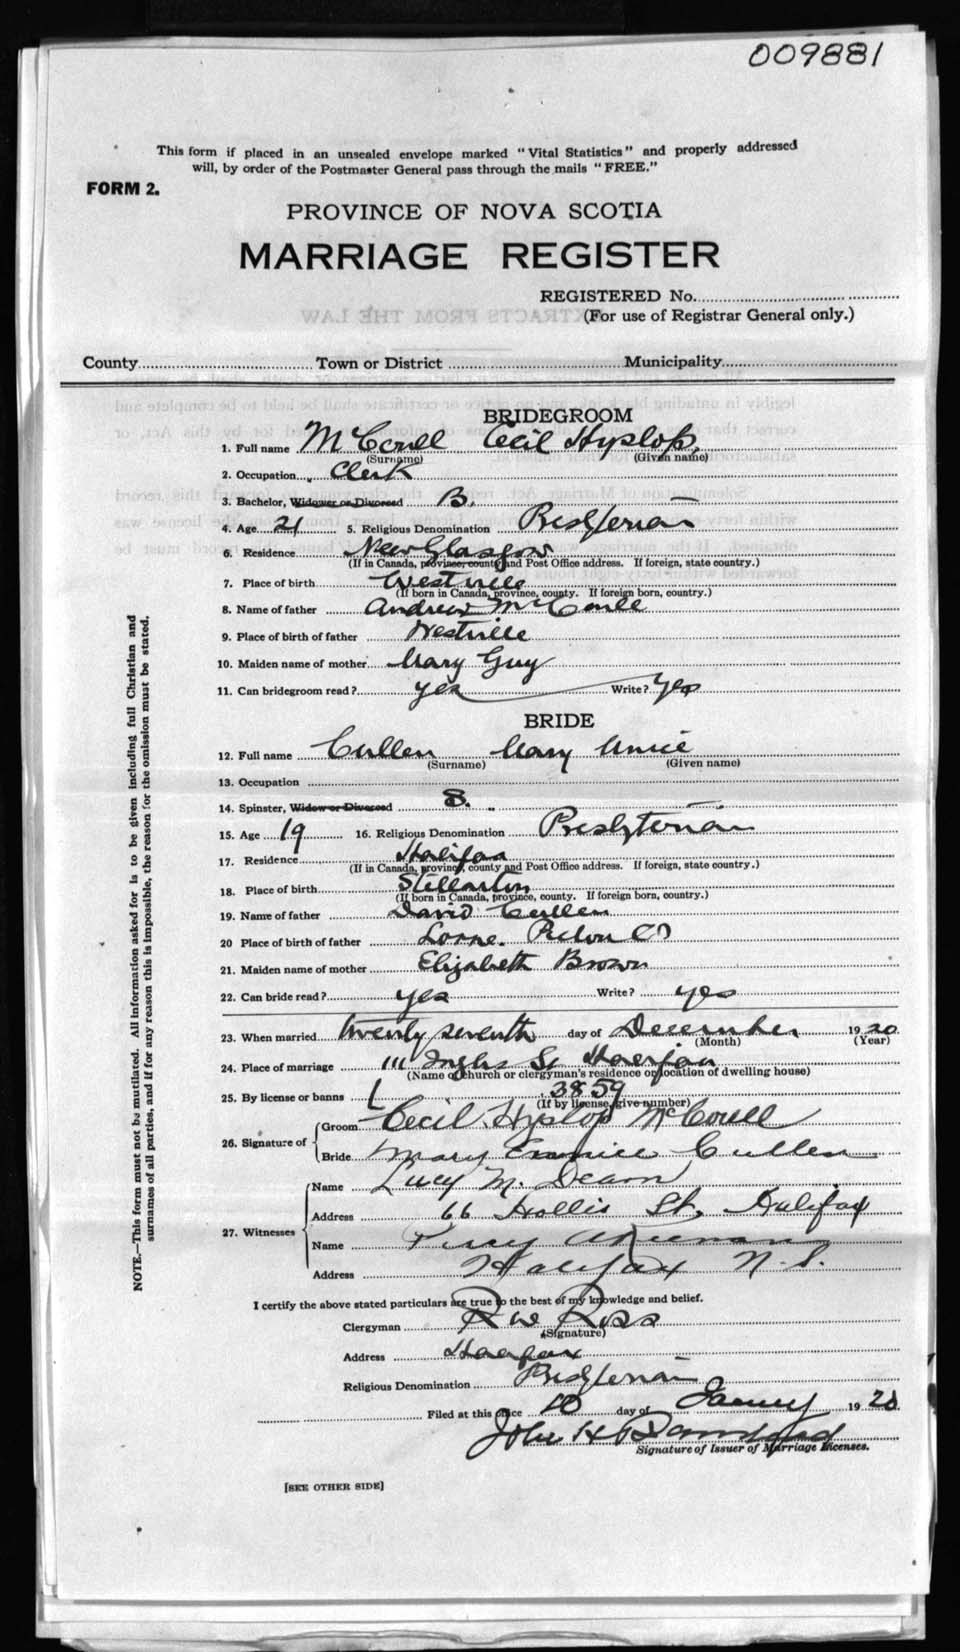 009881
This form if placed in an unsealed envelope marked "Vital Statistics" and properly addressed
will, by order of the Postmaster General pass through the mails "FREE."
FORM 2.
PROVINCE OF NOVA SCOTIA
MARRIAGE REGISTER
REGISTERED No.
(For use of Registrar General only.)
County Town or District Municipality
BRIDEGROOM
1. Full name McCoull Cecil Hyslop,
(Surname) (Given name)
2. Occupation Clerk
3. Bachelor, Widower or Divorced B.
4. Age 21 5. Religious Denomination Presbyterian
6. Residence New Glasgow
(If in Canada, province, county and Post Office address. If foreign, state country.)
7. Place of birth Westville
(If born in Canada, province, county. If foreign born, country.)
8. Name of father Andrew McCoull
9. Place of birth of father Westville
10. Maiden name of mother Mary Guy
11. Can bridegroom read? yes Write? Yes
BRIDE
12. Full name Cullen Mary
(Surname) (Given name)
13. Occupation
14. Spinster, Widow or Divorced S.
15. Age 19 16. Religious Denomination Presbyterian
17. Residence Halifax
(If in Canada, province, county and Post Office address. If foreign, state country.)
18. Place of birth Stellarton
(If born in Canada, province, county. If foreign born, country.)
19. Name of father David Cullen
20 Place of birth of father Lorne. Pictou Co
21. Maiden name of mother Elizabeth Brown
22. Can bride read? yes Write? yes
23. When married twenty seventh day of December 1920
(Month) (Year)
24. Place of marriage 111 Inglis St Halifax
(Name of church or clergyman's residence or location of dwelling house)
25. By license or banns L 3859
(If by license, give number)
26. Signature of Groom Cecil Hyslop McCoull
Bride Mary Cullen
27. Witnesses Name Lucy M.
Address 66 Hollis St. Halifax
Name Percy
Address Halifax N.S.
I certify the above stated particulars are true to the best of my knowledge and belief.
Clergyman R W Ross
(Signature)
Address Halifax
Religious Denomination Presbyterian
Filed at this office 10 day of 19
John H
Signature of Issuer of Marriage Licenses.
[SEE OTHER SIDE]
NOTE.—This form must not be mutilated. All information asked for is to be given including full Christian and
surnames of all parties, and if for any reason this is impossible, the reason for the omission must be stated.